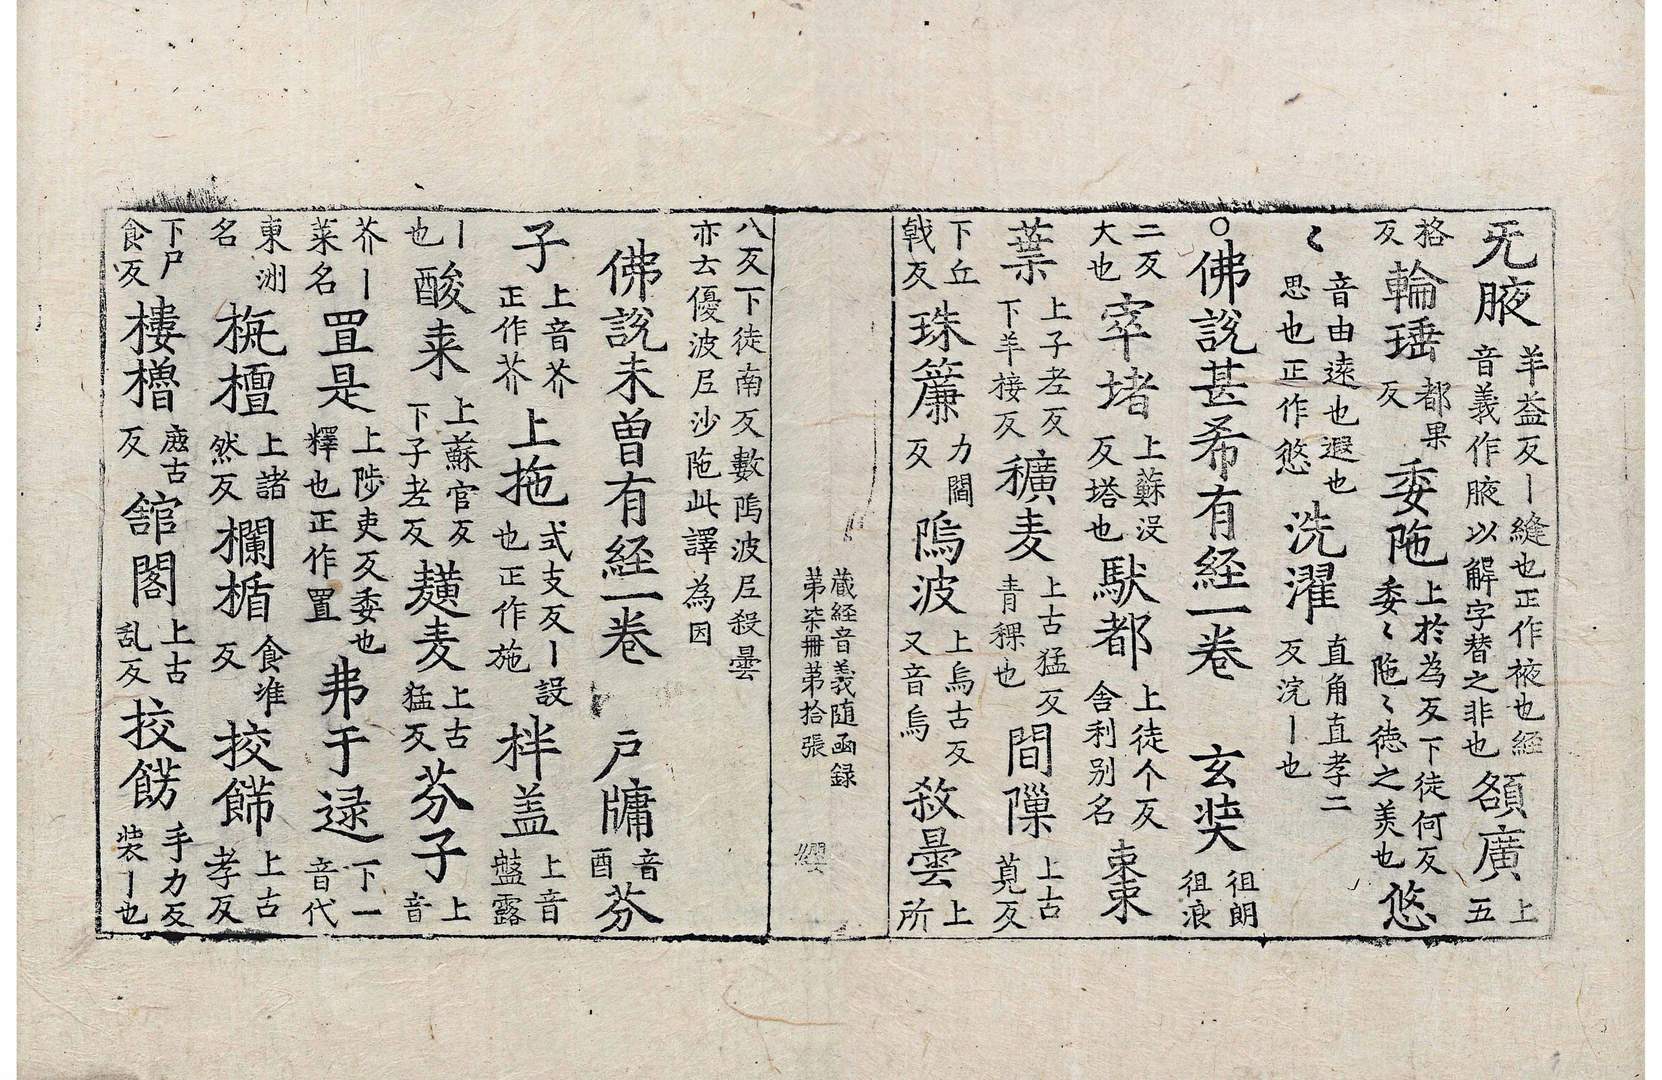 旡腋羊益反丨縫也正作掖也経音義作腋以解字替之非也頟廣上五
格反輪𤦛都果反委陁上於為反下徒何反委〻陁〻徳之羙也悠
〻音由遠也遐也思也正作悠洗濯直角直孝二反浣丨也
○佛說甚希有経一卷 玄奘徂朗徂浪
二反大也窣堵上蘇没反塔也䭾都上徒个反舎利别名𣗥
葉上子老反下羊接反穬麦上古猛反青稞也間𨻶上古莧反
下丘戟反珠簾力閻反鄔波上烏古反又音烏殺曇上所
八反下徒南反數鄔波尼殺曇亦云優波尼沙陁此譯為因
藏經音義随函録
第柒冊第拾張
纓
佛說未曽有経一卷 戶牗音酉芥
子上音芥正作芥上拖式支反丨設也正作施柈盖上音盤露
丨也酸来上蘇官反下子老反䵃麦上古猛反芥子上音
芥丨菜名罝是上陟吏反委也釋也正作置弗于逯下一音代
東洲名栴檀上諸然反欄楯食准反挍餝上古孝反
下尸食反樓櫓盧古反舘閣上古乱反挍餝手力反裝丨也